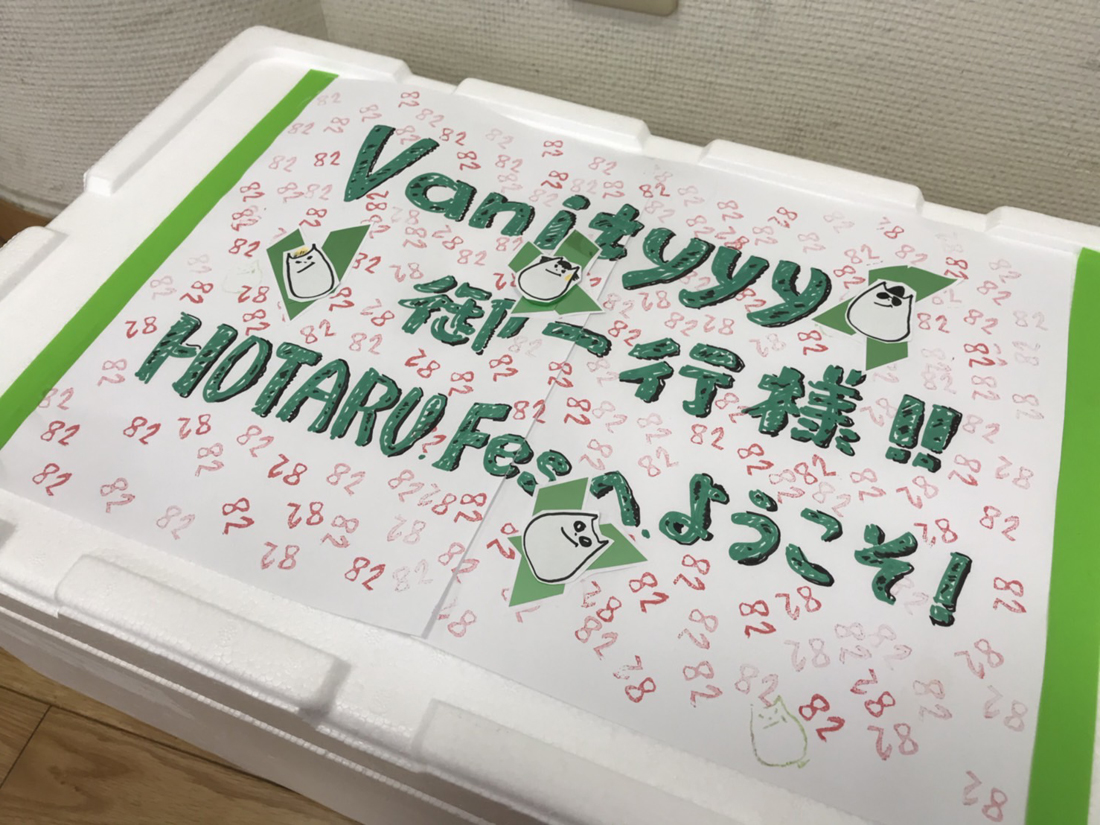 Vanityyy
御一行様!!
HOTARU.Fesへ.ようこそ!
82